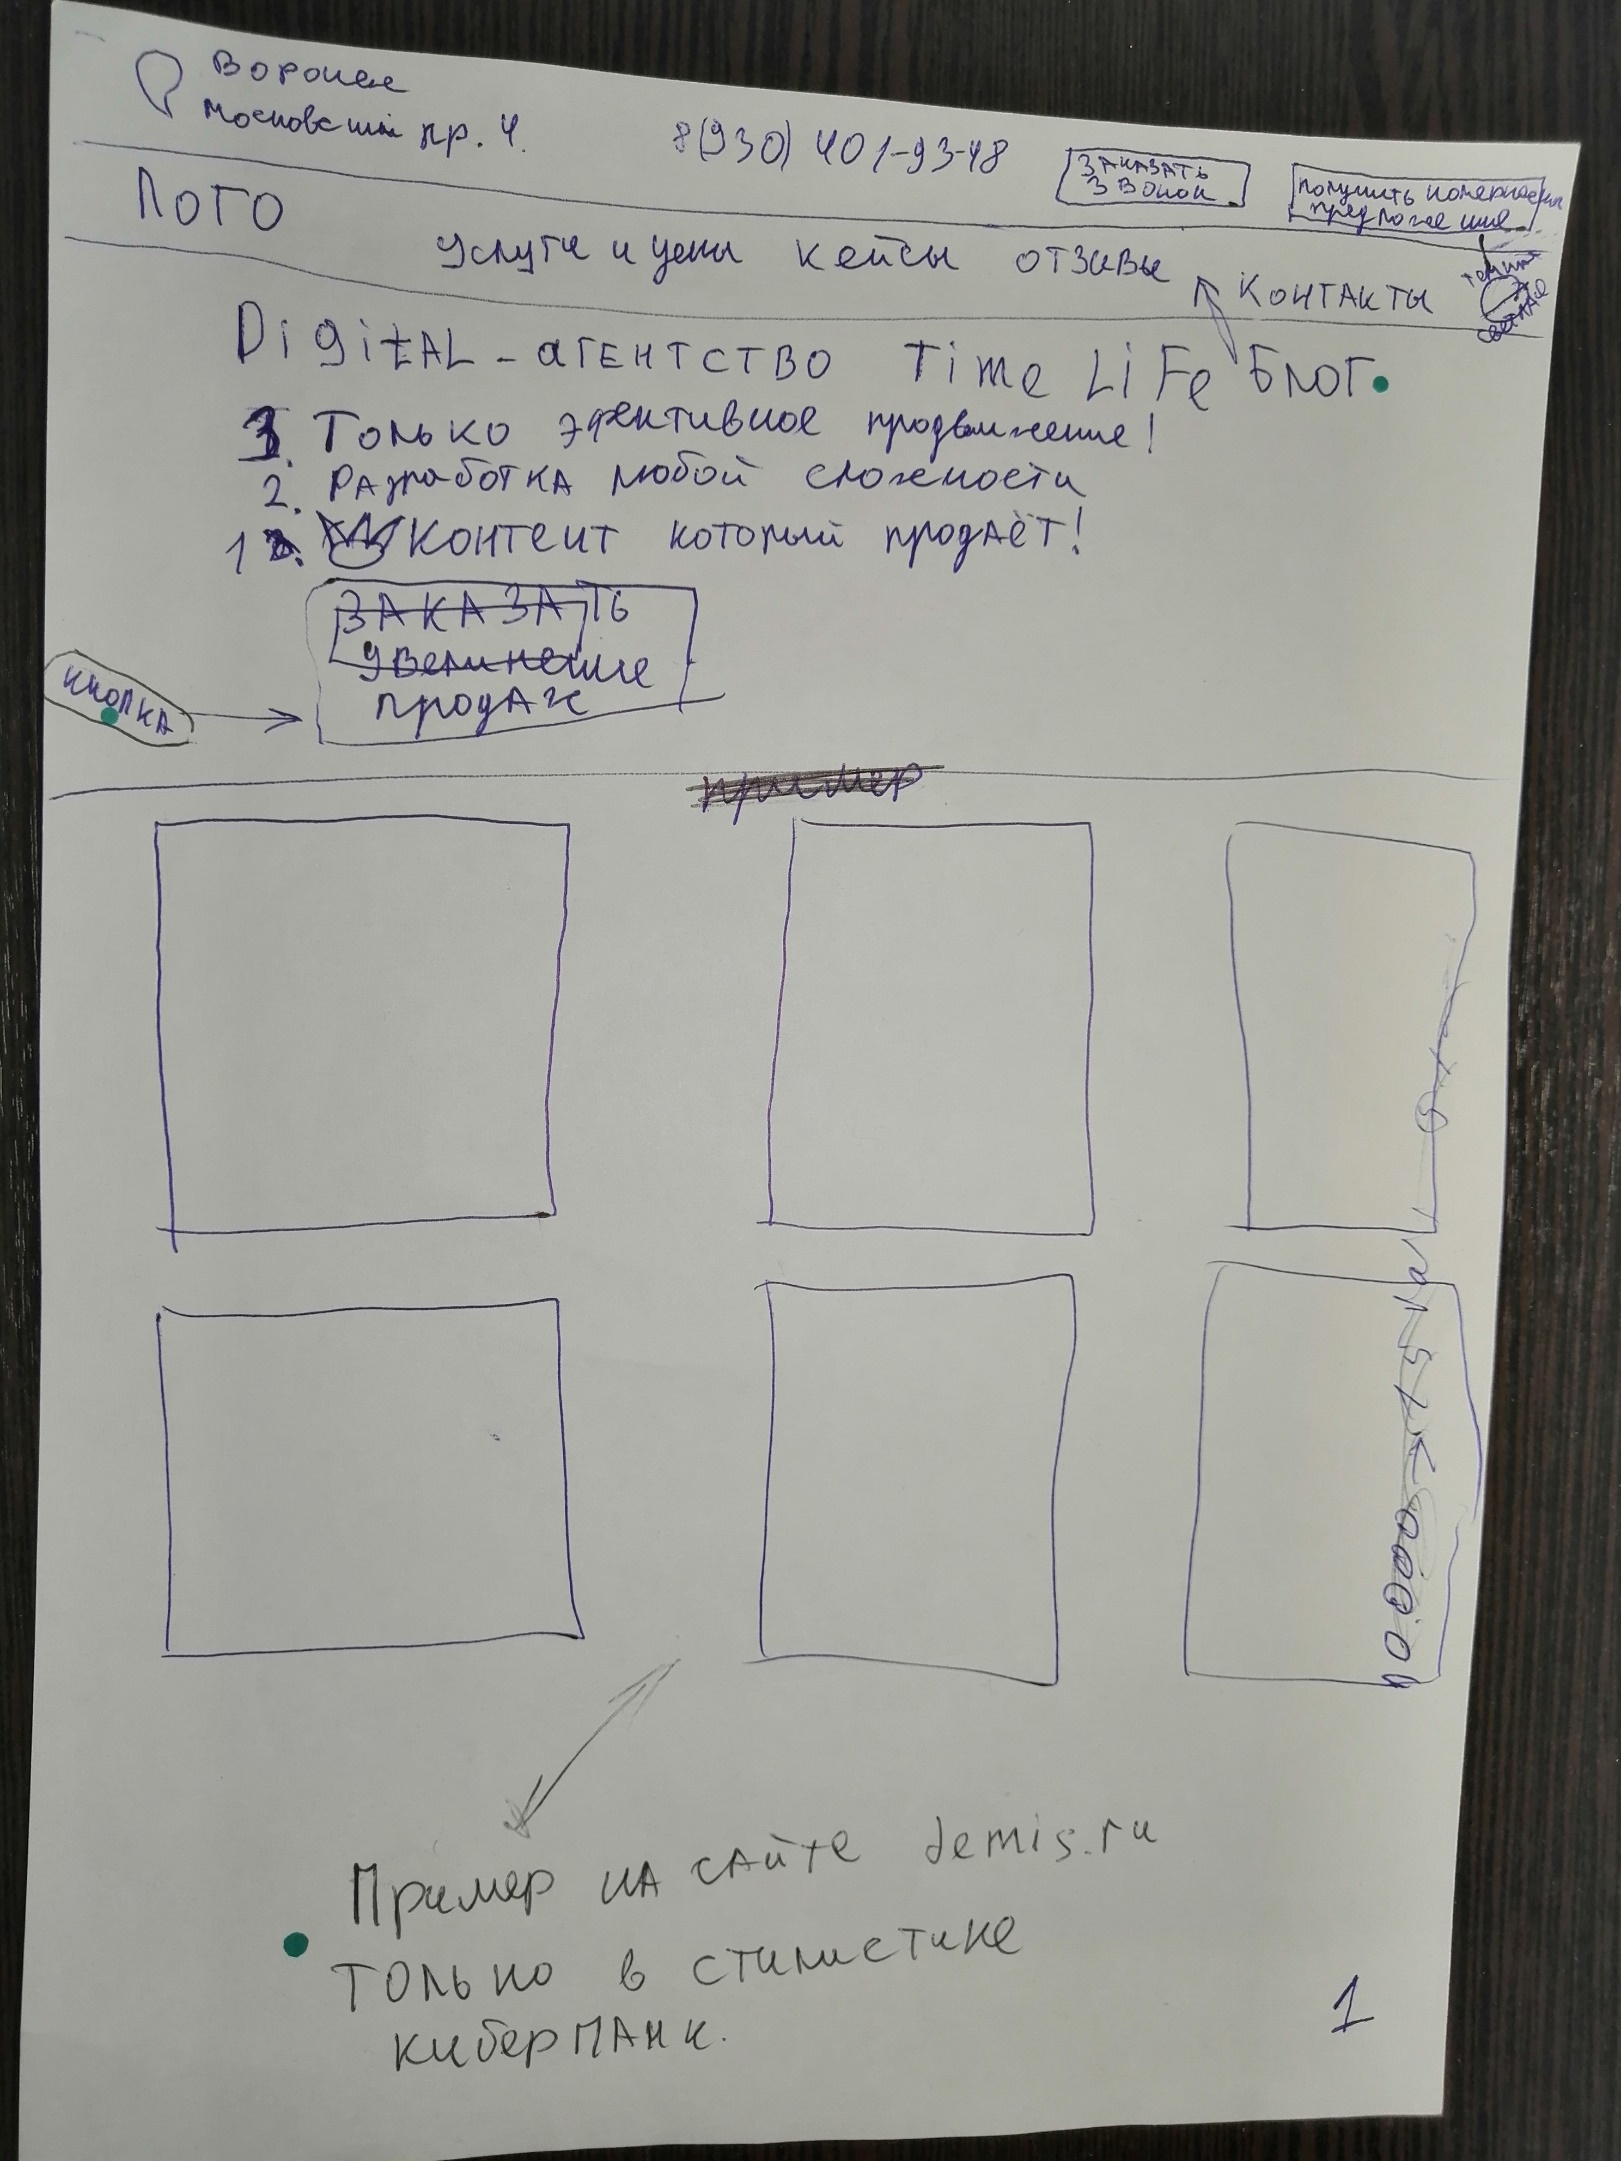 Воронеж
Московский пр. 4.
8(930) 401-93-48
ЗАКАЗАТЬ
ЗВОНОК
получить комерческое
предложение
ЛОГО
Услуги и цены кейсы отзывы
Контакты
темная
светлая
Digital-агентство Time Life Блог.
3. Только эфективное продвижение!
2. Разработка любой сложности
1. Контент который продаёт!
ЗАКАЗАТЬ
увеличение
продаж
кнопка
пример
Пример на сайте demis.ru
только в стилистике
киберпанк.
1